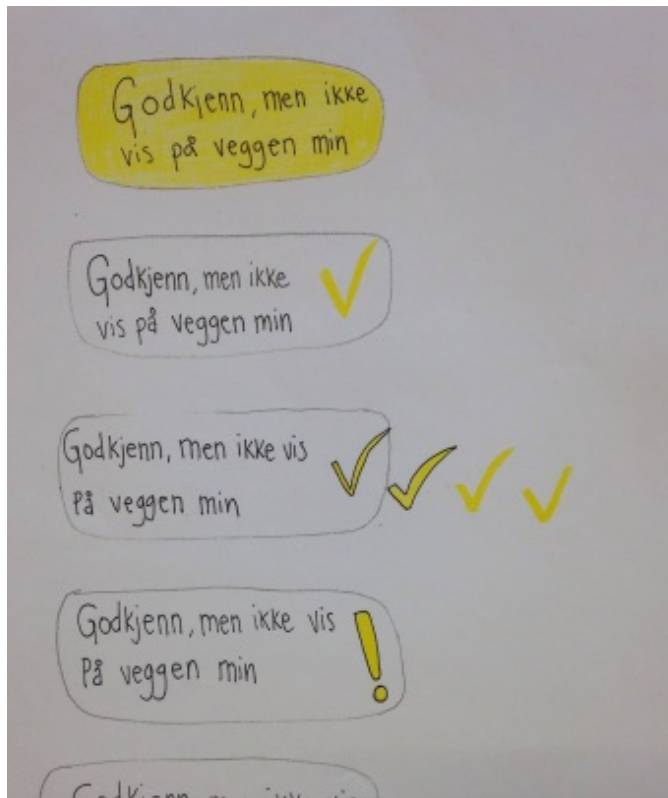 Godkjenn, men ikke
vis på veggen min
Godkjenn, men ikke
vis på veggen min
Godkjenn, men ikke vis
På veggen min
Godkjenn, men ikke vis
På veggen min
Godkjenn, men ikke vis